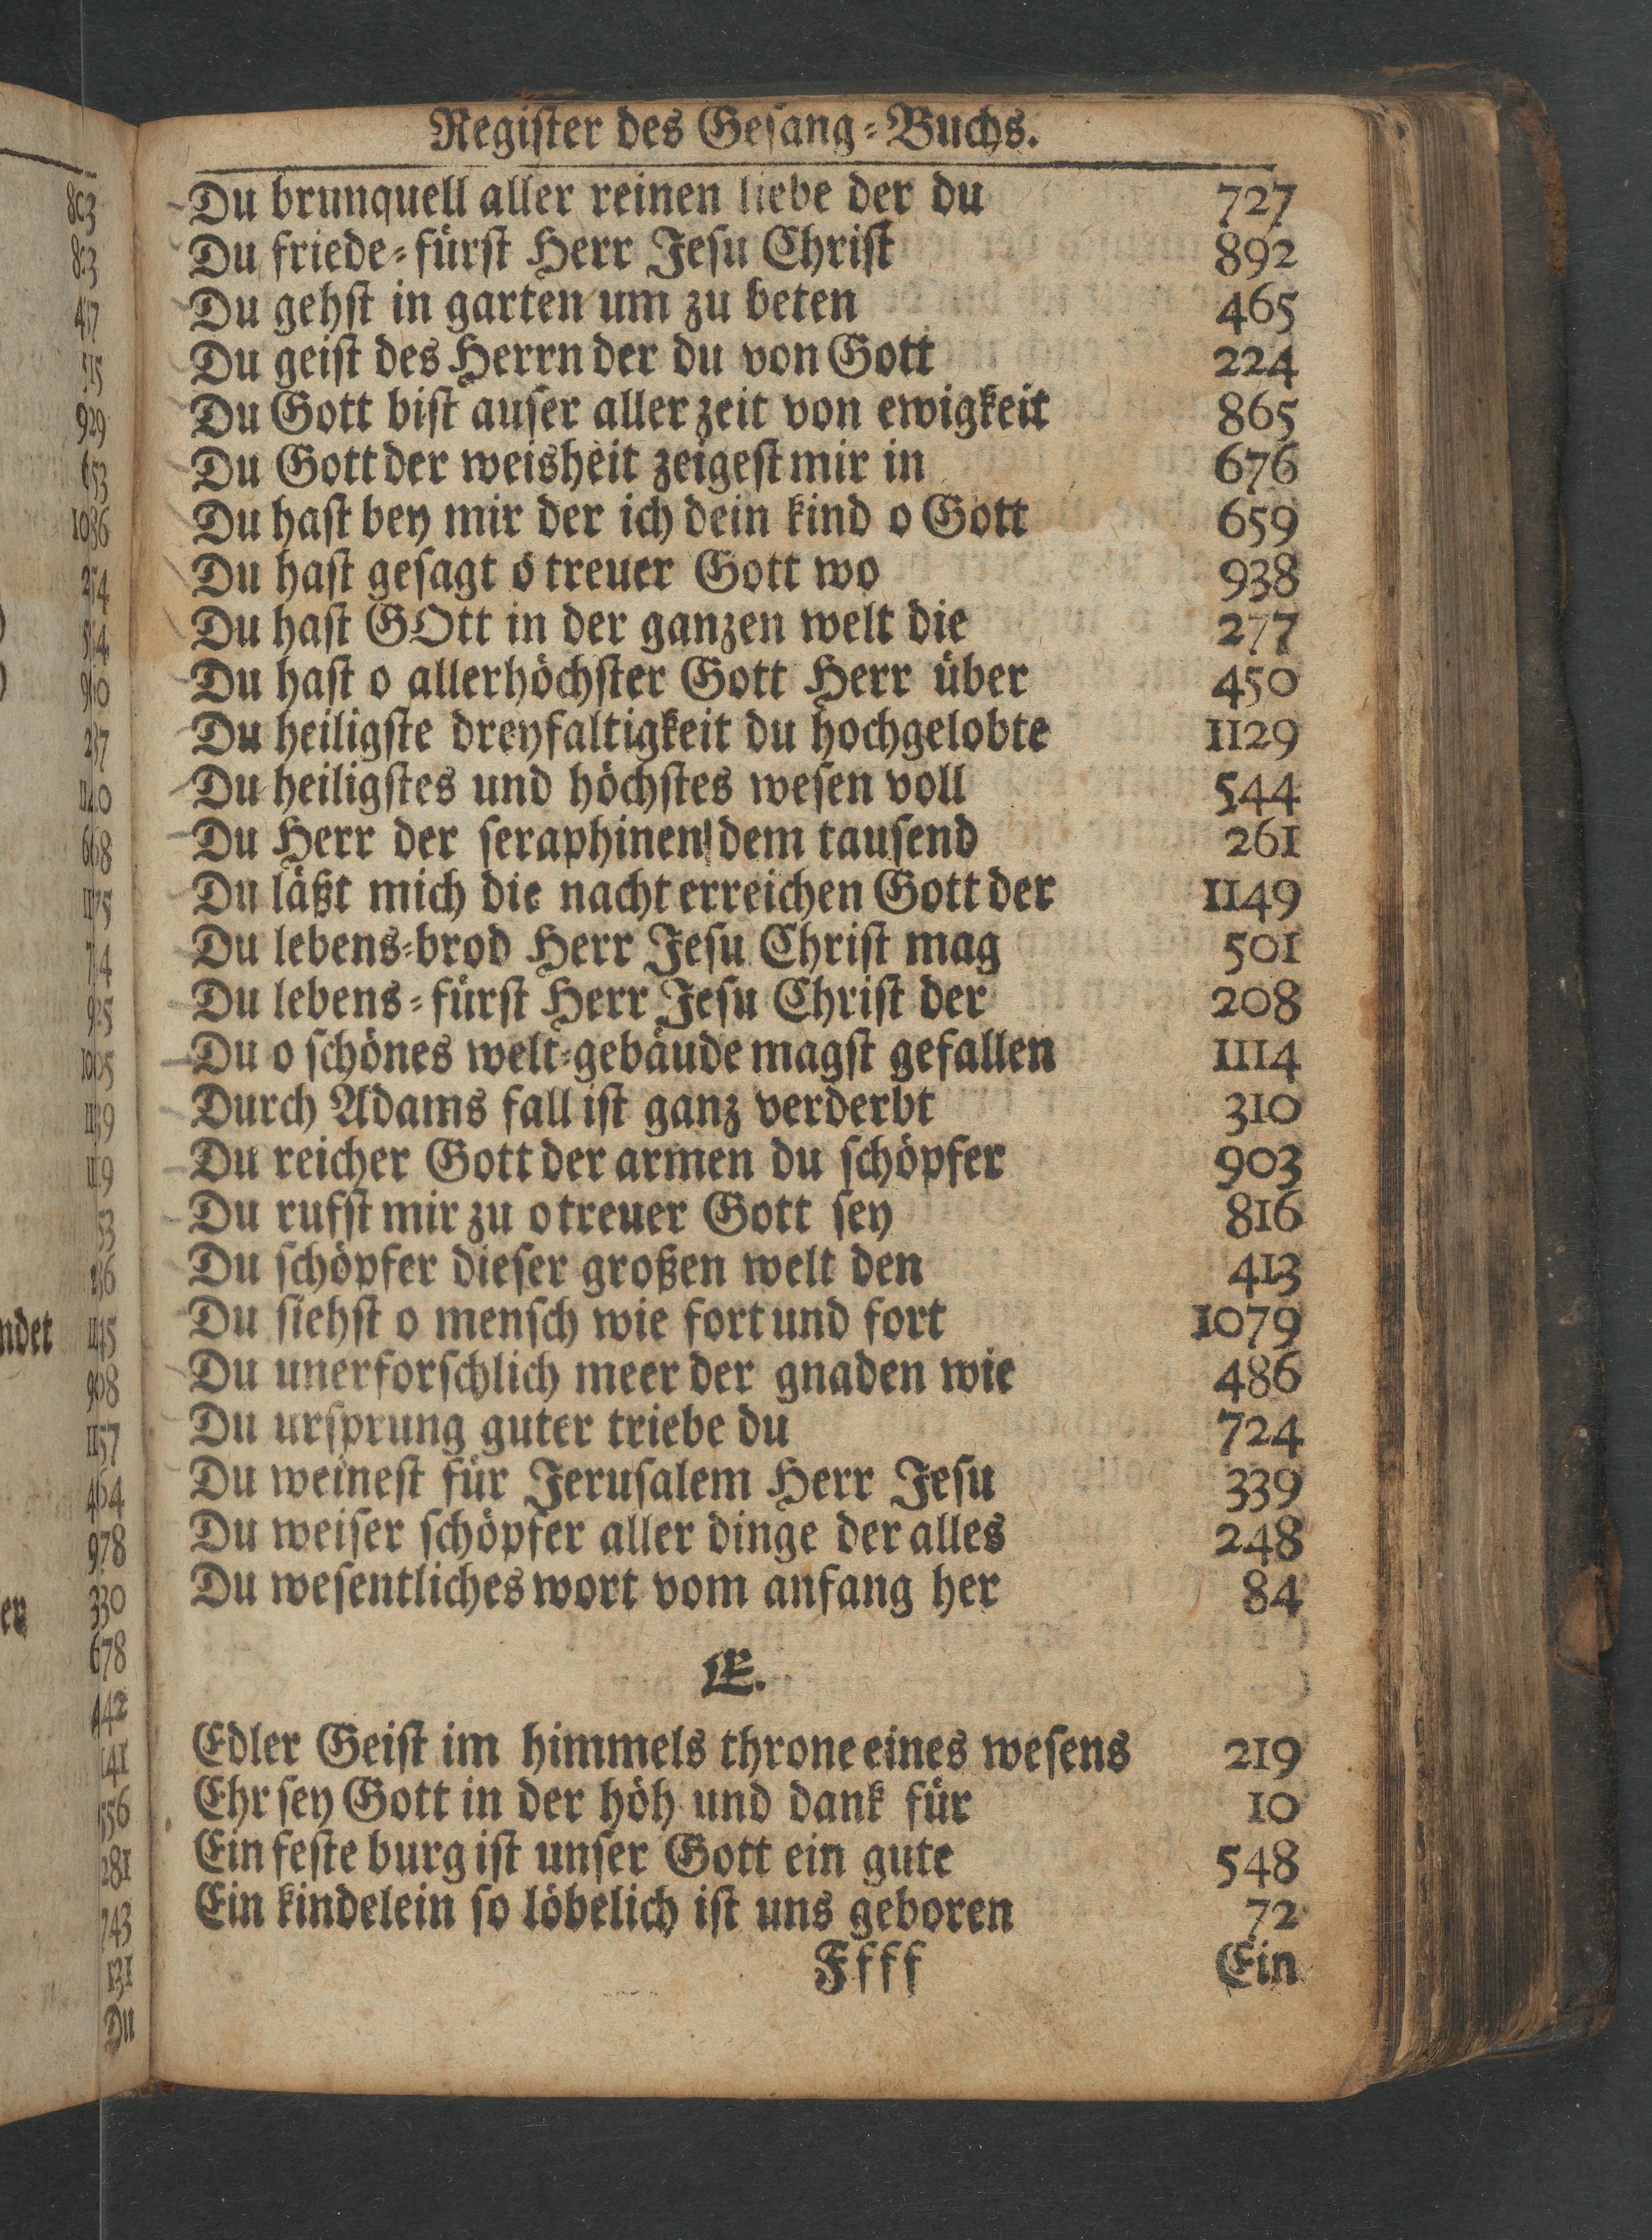 Register des Gesang-Buchs.
Du brunquell aller reinen liebe der du 727
Du friede-fürst Herr Jesu Christ 892
Du gehst in garten um zu beten 465
Du geist des Herrn der du von Gott 224
Du Gott bist auser aller zeit von ewigkeit 865
Du Gott der weisheit zeigest mir in 676
Du hast bey mir der ich dein kind o Gott 659
Du hast gesagt o treuer Gott wo 938
Du hast GOtt in der ganzen welt die 277
Du hast o allerhöchster Gott Herr über 450
Du heiligste dreyfaltigkeit du hochgelobte 1129
Du heiligstes und höchstes wesen voll 544
Du Herr der seraphinen dem tausend 261
Du läßt mich die nacht erreichen Gott der 1149
Du lebens-brod Herr Jesu Christ mag 501
Du lebens-fürst Herr Jesu Christ der 208
Du o schönes welt-gebäude magst gefallen 1114
Durch Adams fall ist ganz verderbt 310
Du reicher Gott der armen du schöpfer 903
Du rufst mir zu o treuer Gott sey 816
Du schöpfer dieser großen welt den 413
Du siehst o mensch wie fort und fort 1079
Du unerforschlich meer der gnaden wie 486
Du ursprung guter triebe du 724
Du weinest für Jerusalem Herr Jesu 339
Du weiser schöpfer aller dinge der alles 248
Du wesentliches wort vom anfang her 84
E.
Edler Geist im himmels throne eines wesens 219
Ehr sey Gott in der höh und dank für 10
Ein feste burg ist unser Gott ein gute 548
Ein kindelein so löbelich ist uns geboren 72
Ffff Ein